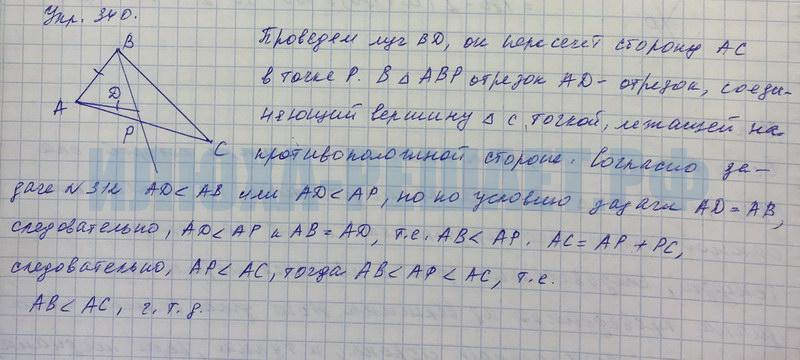 Упр. 340.
B
A
D
P
C
Проведем луч BD, он пересечет сторону AC
в точке P. В △ ABP отрезок AD - отрезок, соеди-
няющий вершину △ с точкой, лежащей на
противоположной стороне. Согласно за-
даче №312 AD < AB или AD < AP, но по условию задачи AD = AB,
следовательно, AD < AP и AB = AD, т.е. AB < AP. AC = AP + PC,
следовательно, AP < AC, тогда AB < AP < AC, т.е.
AB < AC, ч. т. д.